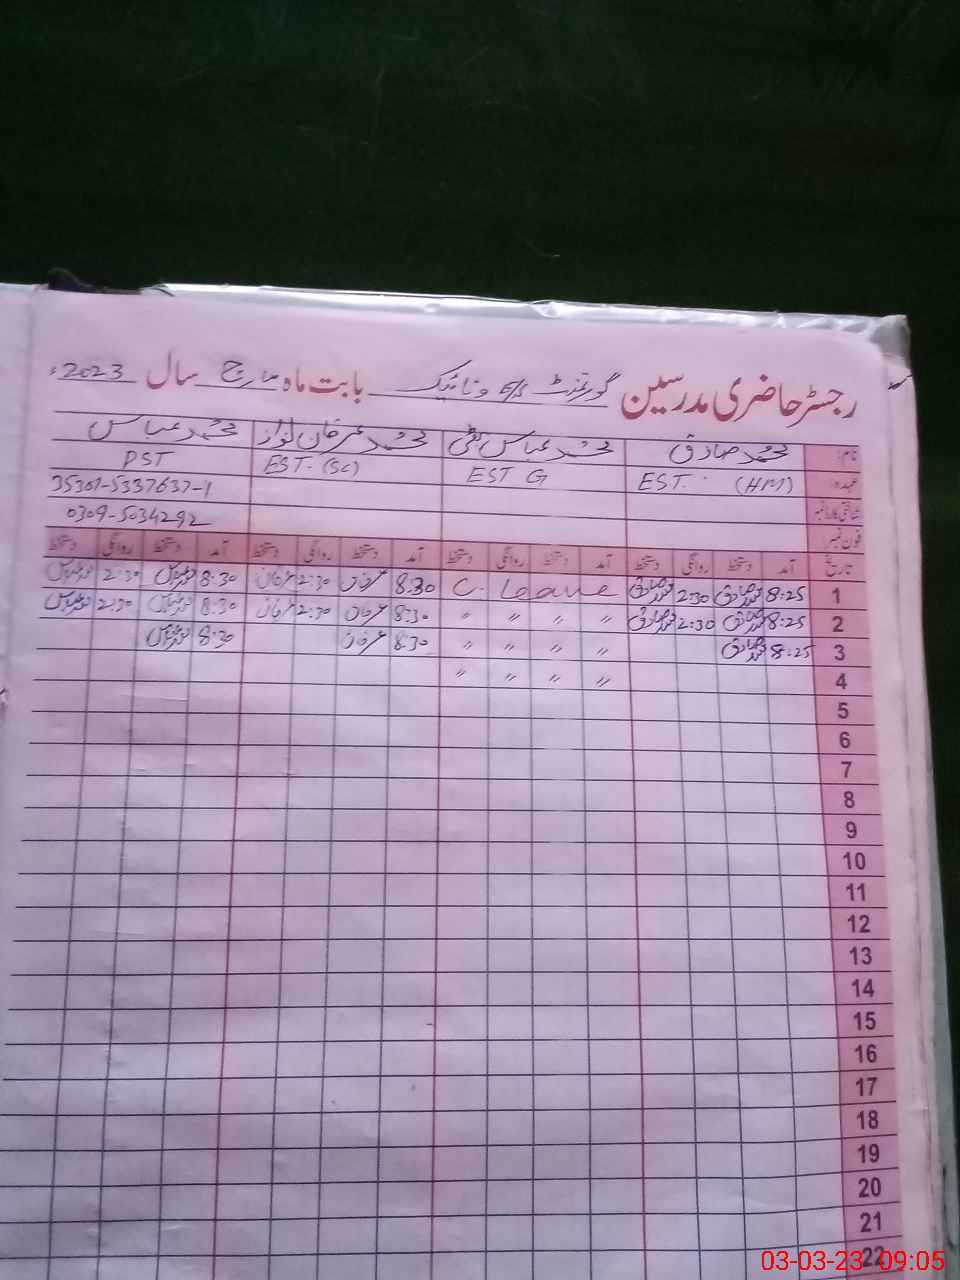 رجسٹر حاضری مدرسین گورنمنٹ E/S ونائیک بابت ماہ مارچ سال 2023ء
نام: محمد صادق محمد عباس نقی محمد عرفان نواز محمد عباس
عہدہ: EST. (HM) EST G EST. (SC) PST
شناختی کارڈ نمبر 35301-5337637-1
فون نمبر: 0309-5034292
تاریخ آمد دستخط روانگی دستخط آمد دستخط روانگی دستخط آمد دستخط روانگی دستخط آمد دستخط روانگی دستخط
1 8:25 محمد صادق 2:30 محمد صادق C. Leave 8:30 عرفان 2:30 عرفان 8:30 محمد عباس 2:30 محمد عباس
2 8:25 محمد صادق 2:30 محمد صادق " " " " 8:30 عرفان 2:30 عرفان 8:30 محمد عباس 2:30 محمد عباس
3 8:25 محمد صادق " " " " 8:30 عرفان 8:30 محمد عباس
4 " " " "
5
6
7
8
9
10
11
12
13
14
15
16
17
18
19
20
21
22
03-03-23 09:05